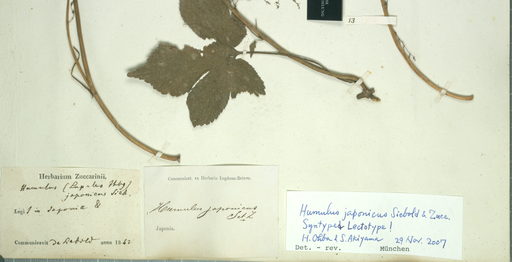 13
Herbarium Zuccarinii.
Humulus (Lupulus Thbg)
japonicus Sieb.
Legi in Japonia
Communicavit de Siebold anno 1843
Communicat. ex Herbario Lugduno-Batavo.
Humulus japonicus
S et Z
Japonia.
Humulus japonicus Siebold & Zucc.
Syntype Lectotype!
H. Ohba & S. Akiyama 29 Nov. 2007
Det. - rev. München